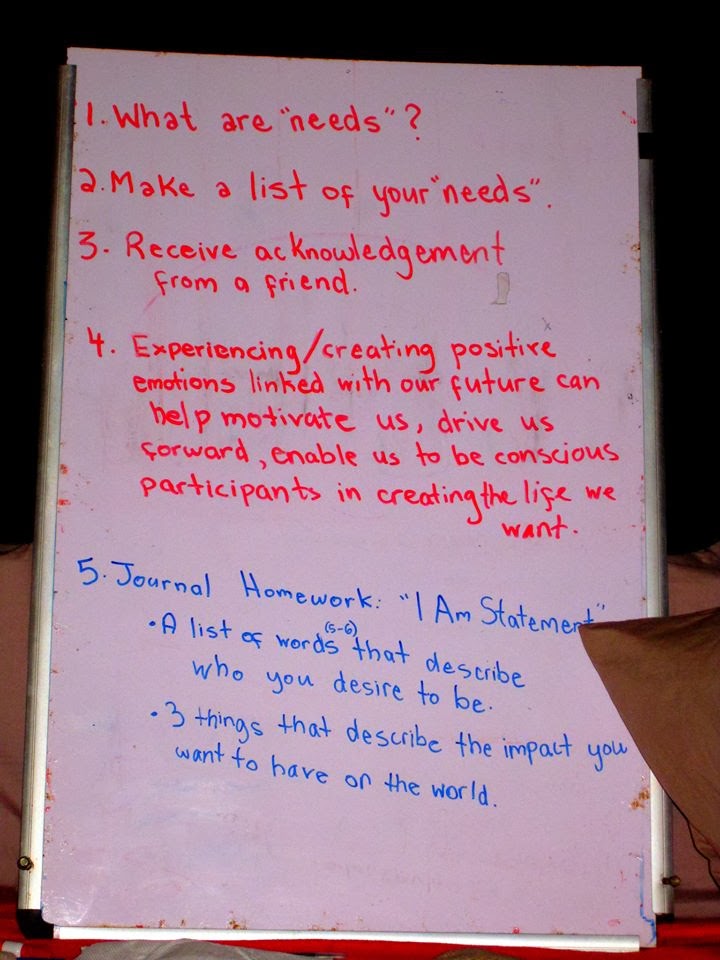 1. What are "needs"?
2. Make a list of your "needs".
3. Receive acknowledgement
from a friend.
4. Experiencing/creating positive
emotions linked with our future can
help motivate us, drive us
forward, enable us to be conscious
participants in creating the life we
want.
5. Journal Homework: "I Am Statement"
(5-6)
• A list of words that describe
who you desire to be.
• 3 things that describe the impact you
want to have on the world.